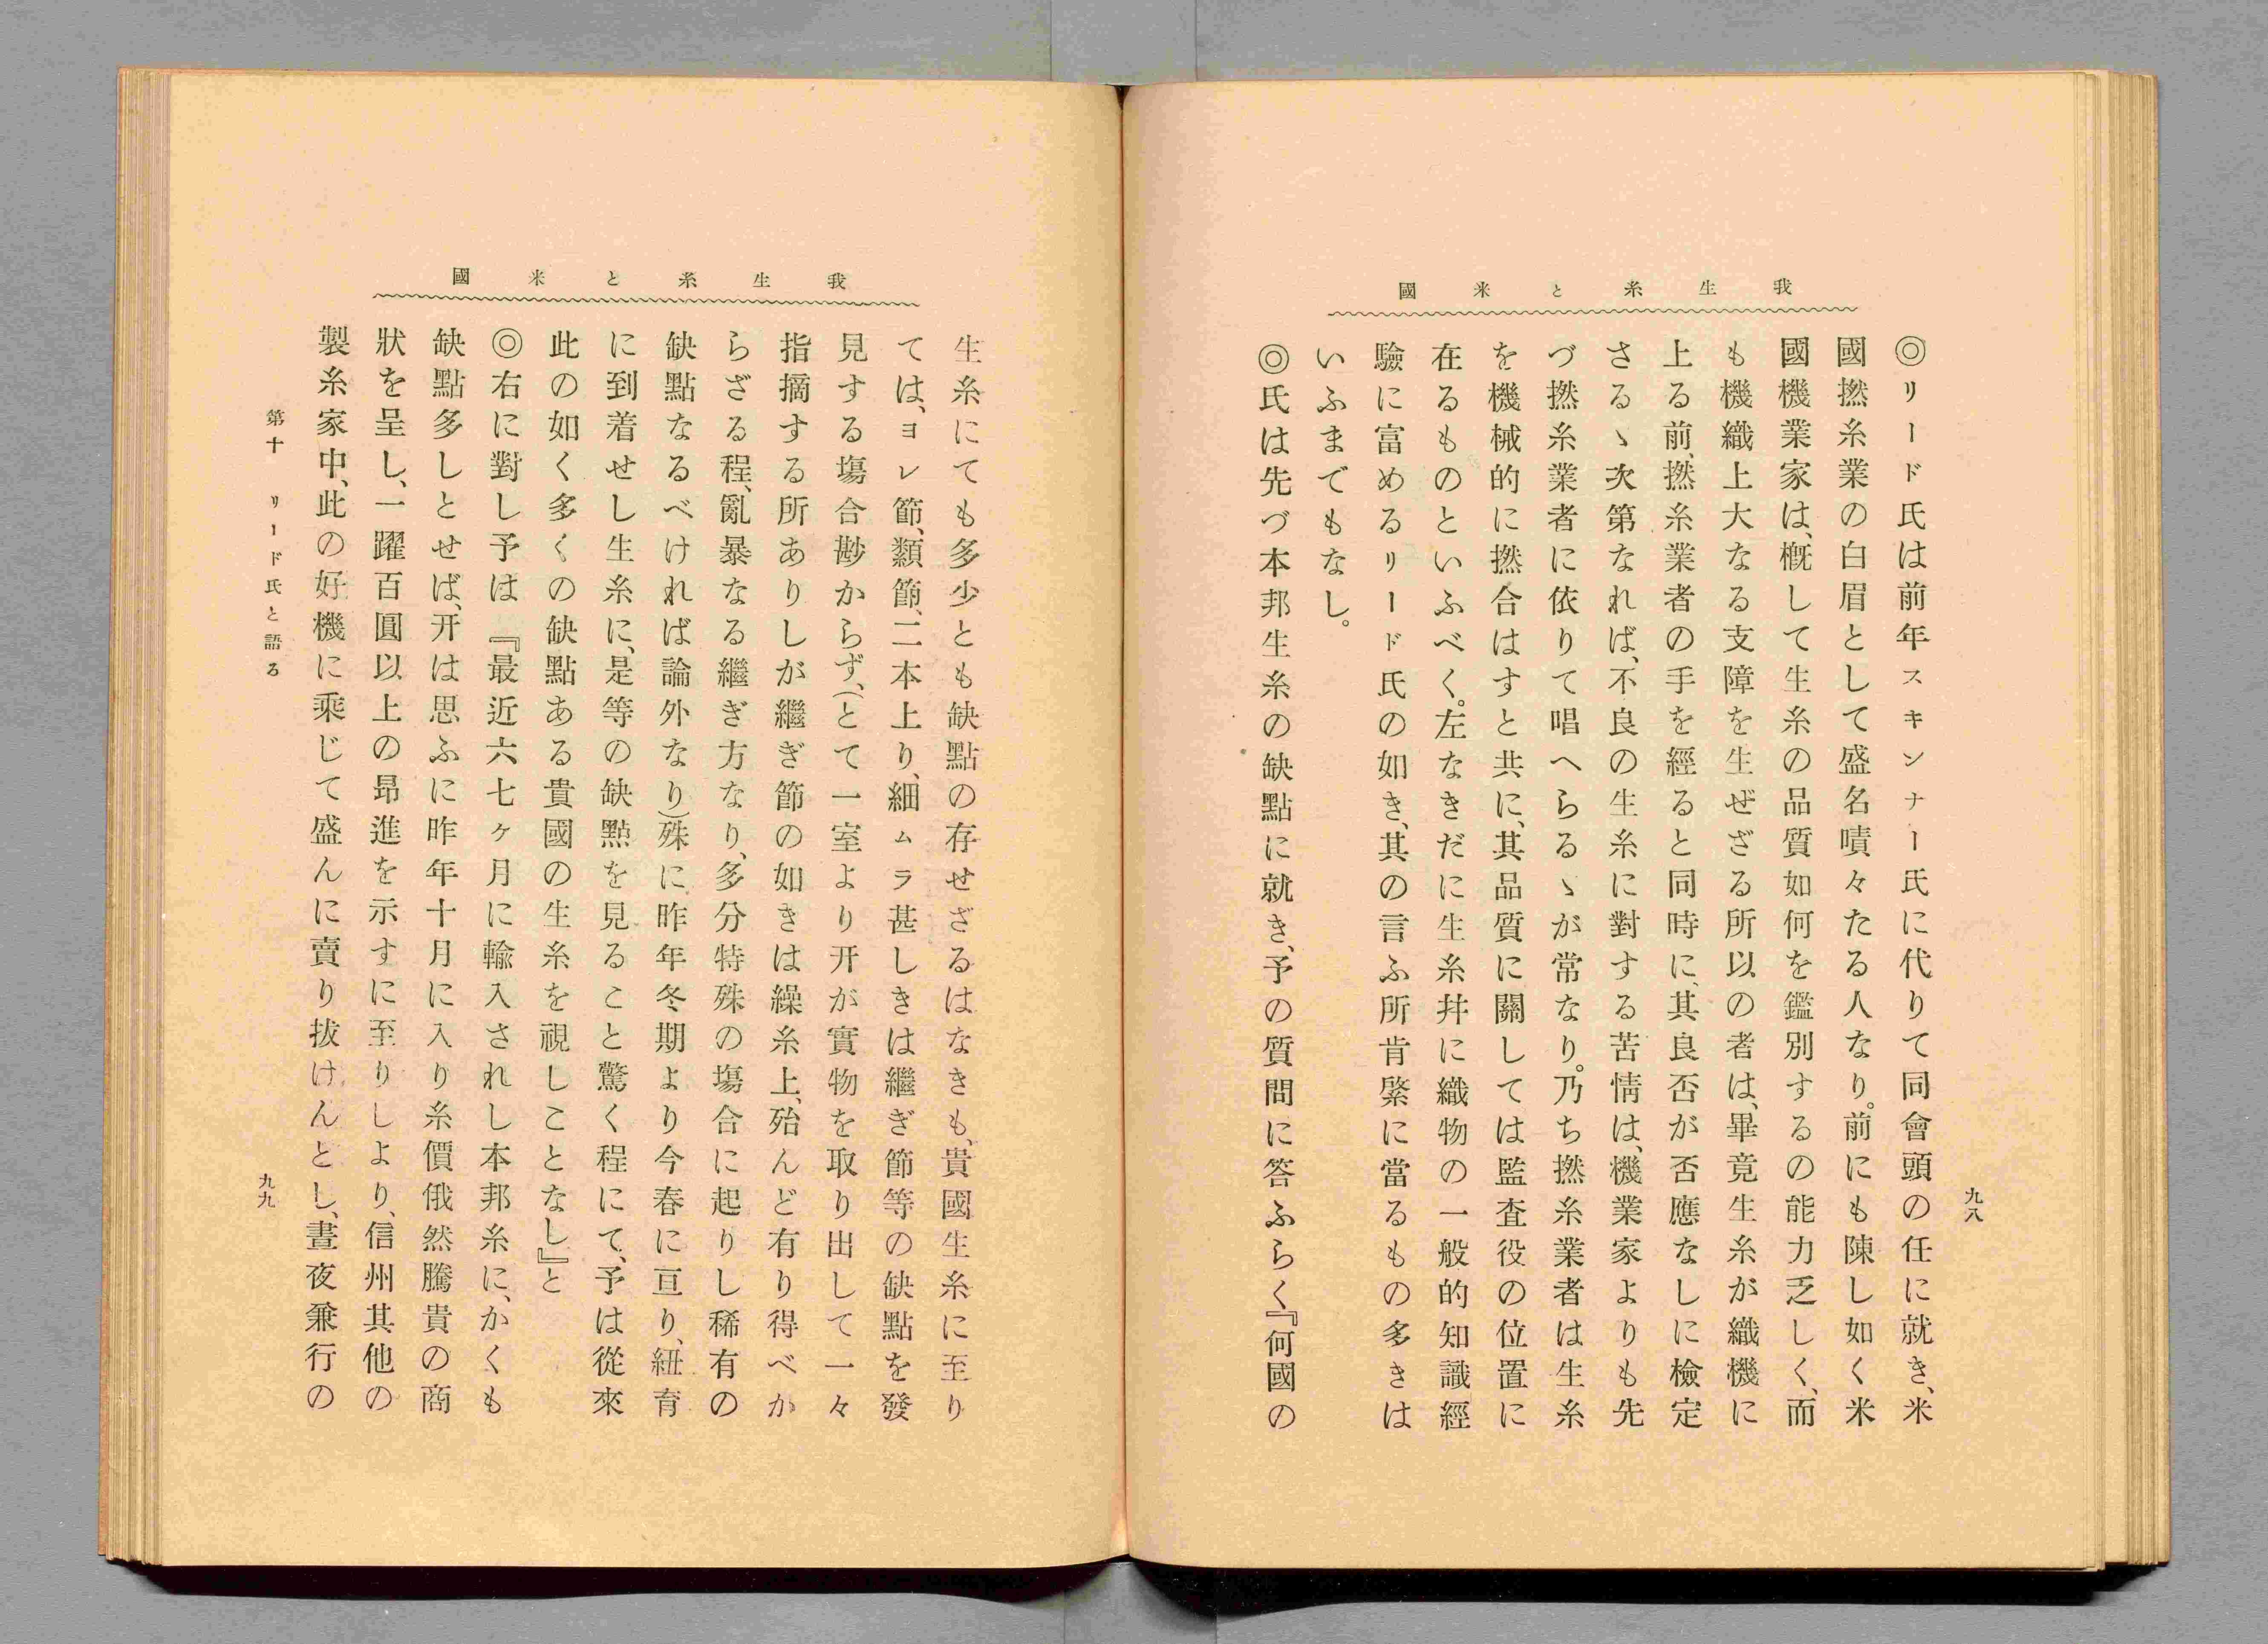 我生糸と米國
九八
◎リード氏は前年スキンナー氏に代りて同會頭の任に就き、米
國撚糸業の白眉として盛名嘖々たる人なり。前にも陳し如く米
國機業家は、概して生糸の品質如何を鑑別するの能力乏しく、而
も機織上大なる支障を生ぜざる所以の者は、畢竟生糸が織機に
上る前、撚糸業者の手を經ると同時に、其良否が否應なしに檢定
さるゝ次第なれば、不良の生糸に對する苦情は、機業家よりも先
づ撚糸業者に依りて唱へらるゝが常なり。乃ち撚糸業者は生糸
を機械的に撚合はすと共に、其品質に關しては監査役の位置に
在るものといふべく。左なきだに生糸幷に織物の一般的知識經
驗に富めるリード氏の如き、其の言ふ所肯綮に當るもの多きは
いふまでもなし。
◎氏は先づ本邦生糸の缺點に就き、予の質問に答ふらく『何國の
我生糸と米國
生糸にても多少とも缺點の存せざるはなきも、貴國生糸に至り
ては、ヨレ節、纇節、二本上り、細ムラ甚しきは繼ぎ節等の缺點を發
見する塲合尠からず、(とて一室より开が實物を取り出して一々
指摘する所ありしが繼ぎ節の如きは繰糸上、殆んど有り得べか
らざる程、亂暴なる繼ぎ方なり、多分特殊の塲合に起りし稀有の
缺點なるべければ論外なり)殊に昨年冬期より今春に亘り、紐育
に到着せし生糸に、是等の缺點を見ること驚く程にて、予は從來
此の如く多くの缺點ある貴國の生糸を視しことなし』と
◎右に對し予は『最近六七ヶ月に輸入されし本邦糸に、かくも
缺點多しとせば、开は思ふに昨年十月に入り糸價俄然騰貴の商
狀を呈し、一躍百圓以上の昻進を示すに至りしより、信州其他の
製糸家中、此の好機に乘じて盛んに賣り拔けんとし、晝夜兼行の
第十 リード氏と語る
九九